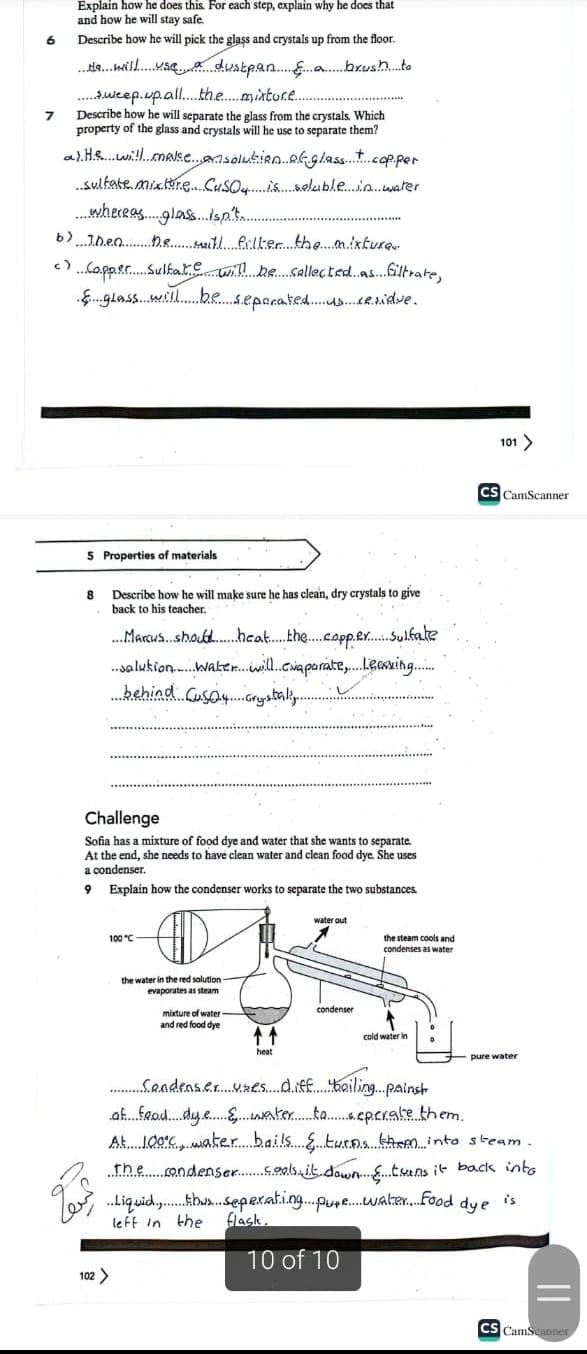 Explain how he does this. For each step, explain why he does that
and how he will stay safe.
6 Describe how he will pick the glass and crystals up from the floor.
He will use a dustpan & a brush to
sweep up all the mixture.
7 Describe how he will separate the glass from the crystals. Which
property of the glass and crystals will he use to separate them?
a) He will make solution of glass + copper
sulfate mixture. CuSO4 is soluble in water
whereas glass isn't.
b) Then he will filter the mixture.
c) Copper sulfate will be collected as filtrate,
& glass will be seperated as residue.
101 >
CS CamScanner
5 Properties of materials
8 Describe how he will make sure he has clean, dry crystals to give
back to his teacher.
Marcus should heat the copper sulfate
solution. Water will evaporate, leaving
behind CuSO4 crystals.
Challenge
Sofia has a mixture of food dye and water that she wants to separate.
At the end, she needs to have clean water and clean food dye. She uses
a condenser.
9 Explain how the condenser works to separate the two substances.
water out
100 °C
the steam cools and
condenses as water
the water in the red solution
evaporates as steam
mixture of water
and red food dye
condenser
cold water in
heat
pure water
Condenser uses diff boiling points
of food dye & water to seperate them.
At 100°C, water boils & turns into steam.
The condenser cools it down & turns it back into
liquid, thus seperating pure water. Food dye is
left in the flask.
10 of 10
102 >
CS CamScanner